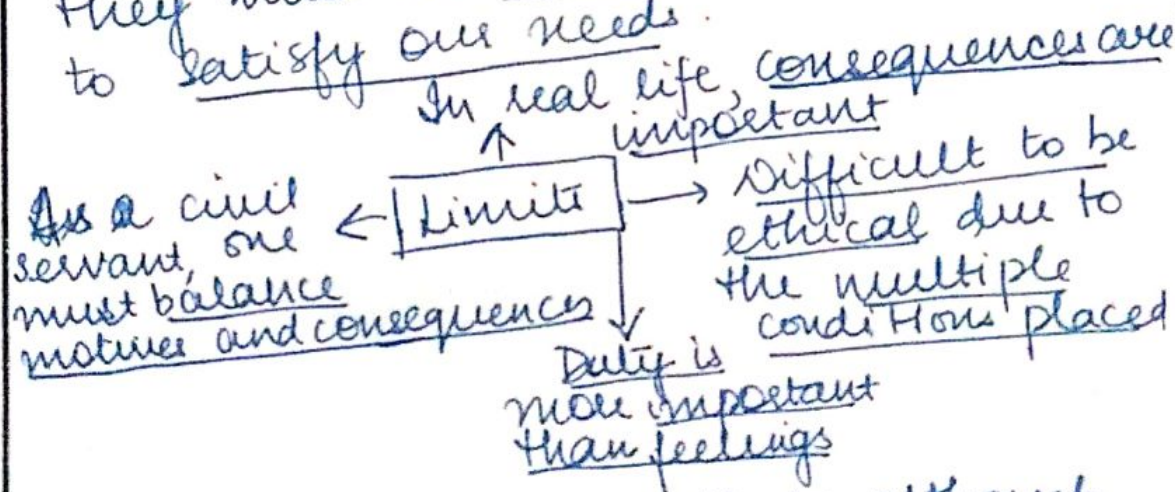 they
to satisfy our needs.
In real life, consequences are
important
Limits
As a civil
servant, one
must balance
motives and consequences
Difficult to be
ethical due to
the multiple
conditions placed
Duty is
more important
than feelings